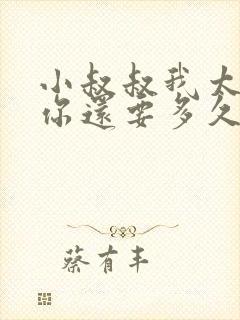 小叔叔我太
你還要多久
蔡有丰